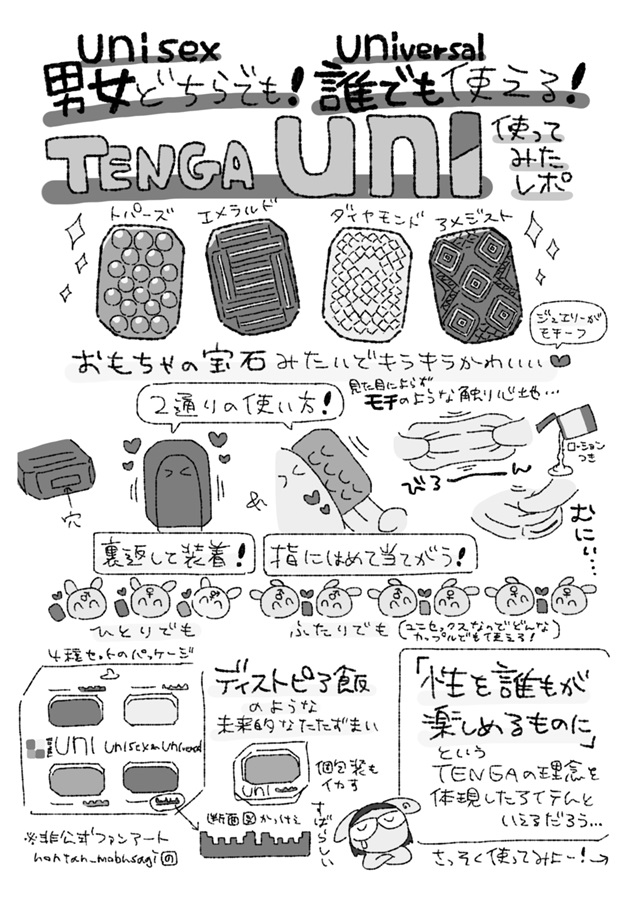 unisex
universal
男女どちらでも！誰でも使える！
TENGA uni
使って
みた
レポ
トパーズ
エメラルド
ダイヤモンド
アメジスト
ジュエリーが
モチーフ
おもちゃの宝石みたいでキラキラかわいい
2通りの使い方！
見た目によらず
モチのような触り心地…
ローション
つき
穴
&
びろーーん
むにぃ…
裏返して装着！
指にはめて当てがう！
ひとりでも
ふたりでも
ユニセックスなのでどんな
カップルでも使える！
4種セットのパッケージ
uni unisex universal
ディストピア飯
のような
未来的なたたずまい
uni
個包装も
イカす
断面図かっけえ
すばらしい
「性を誰もが
楽しめるものに」
という
TENGAの理念を
体現したアイテムと
いえるだろう…
※非公式ファンアート
さっそく使ってみよー！→